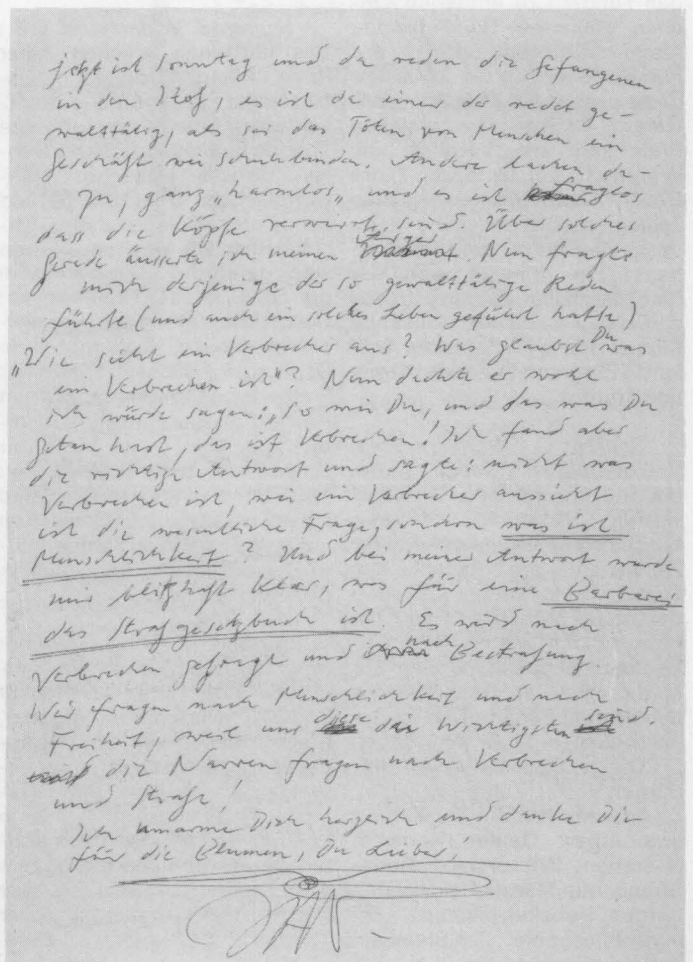 jetzt ist Sonntag und da reden die Gefangenen
in den Hof, es ist da einer der redet ge-
walttätig, als sei das Töten von Menschen ein
Geschäft wie Schuhebinden. Andere lachen da-
zu, ganz „harmlos„ und es ist fraglos
dass die Köpfe verwirrt sind. Über solches
Gerede äusserte ich meinen Ärger. Nun fragte
mich derjenige der so gewalttätige Reden
führte (und auch ein solches Leben geführt hatte)
„Wie sieht ein Verbrecher aus? Was glaubst Du was
ein Verbrechen ist"? Nun dachte er wohl
ich würde sagen: „So wie Du, und das was Du
getan hast, das ist Verbrechen! Ich fand aber
die richtige Antwort und sagte: nicht was
Verbrechen ist, wie ein Verbrecher aussieht
ist die wesentliche Frage, sondern was ist
Menschlichkeit? Und bei meiner Antwort wurde
mir blitzhaft klar, was für eine Barbarei
das Strafgesetzbuch ist. Es wird nach
Verbrechen gefragt und nach Bestrafung.
Wir fragen nach Menschlichkeit und nach
Freiheit, weil uns diese die Wichtigsten sind.
die Narren fragen nach Verbrechen
und Strafe!
Ich umarme Dich herzlich und danke Dir
für die Blumen, Du Lieber!